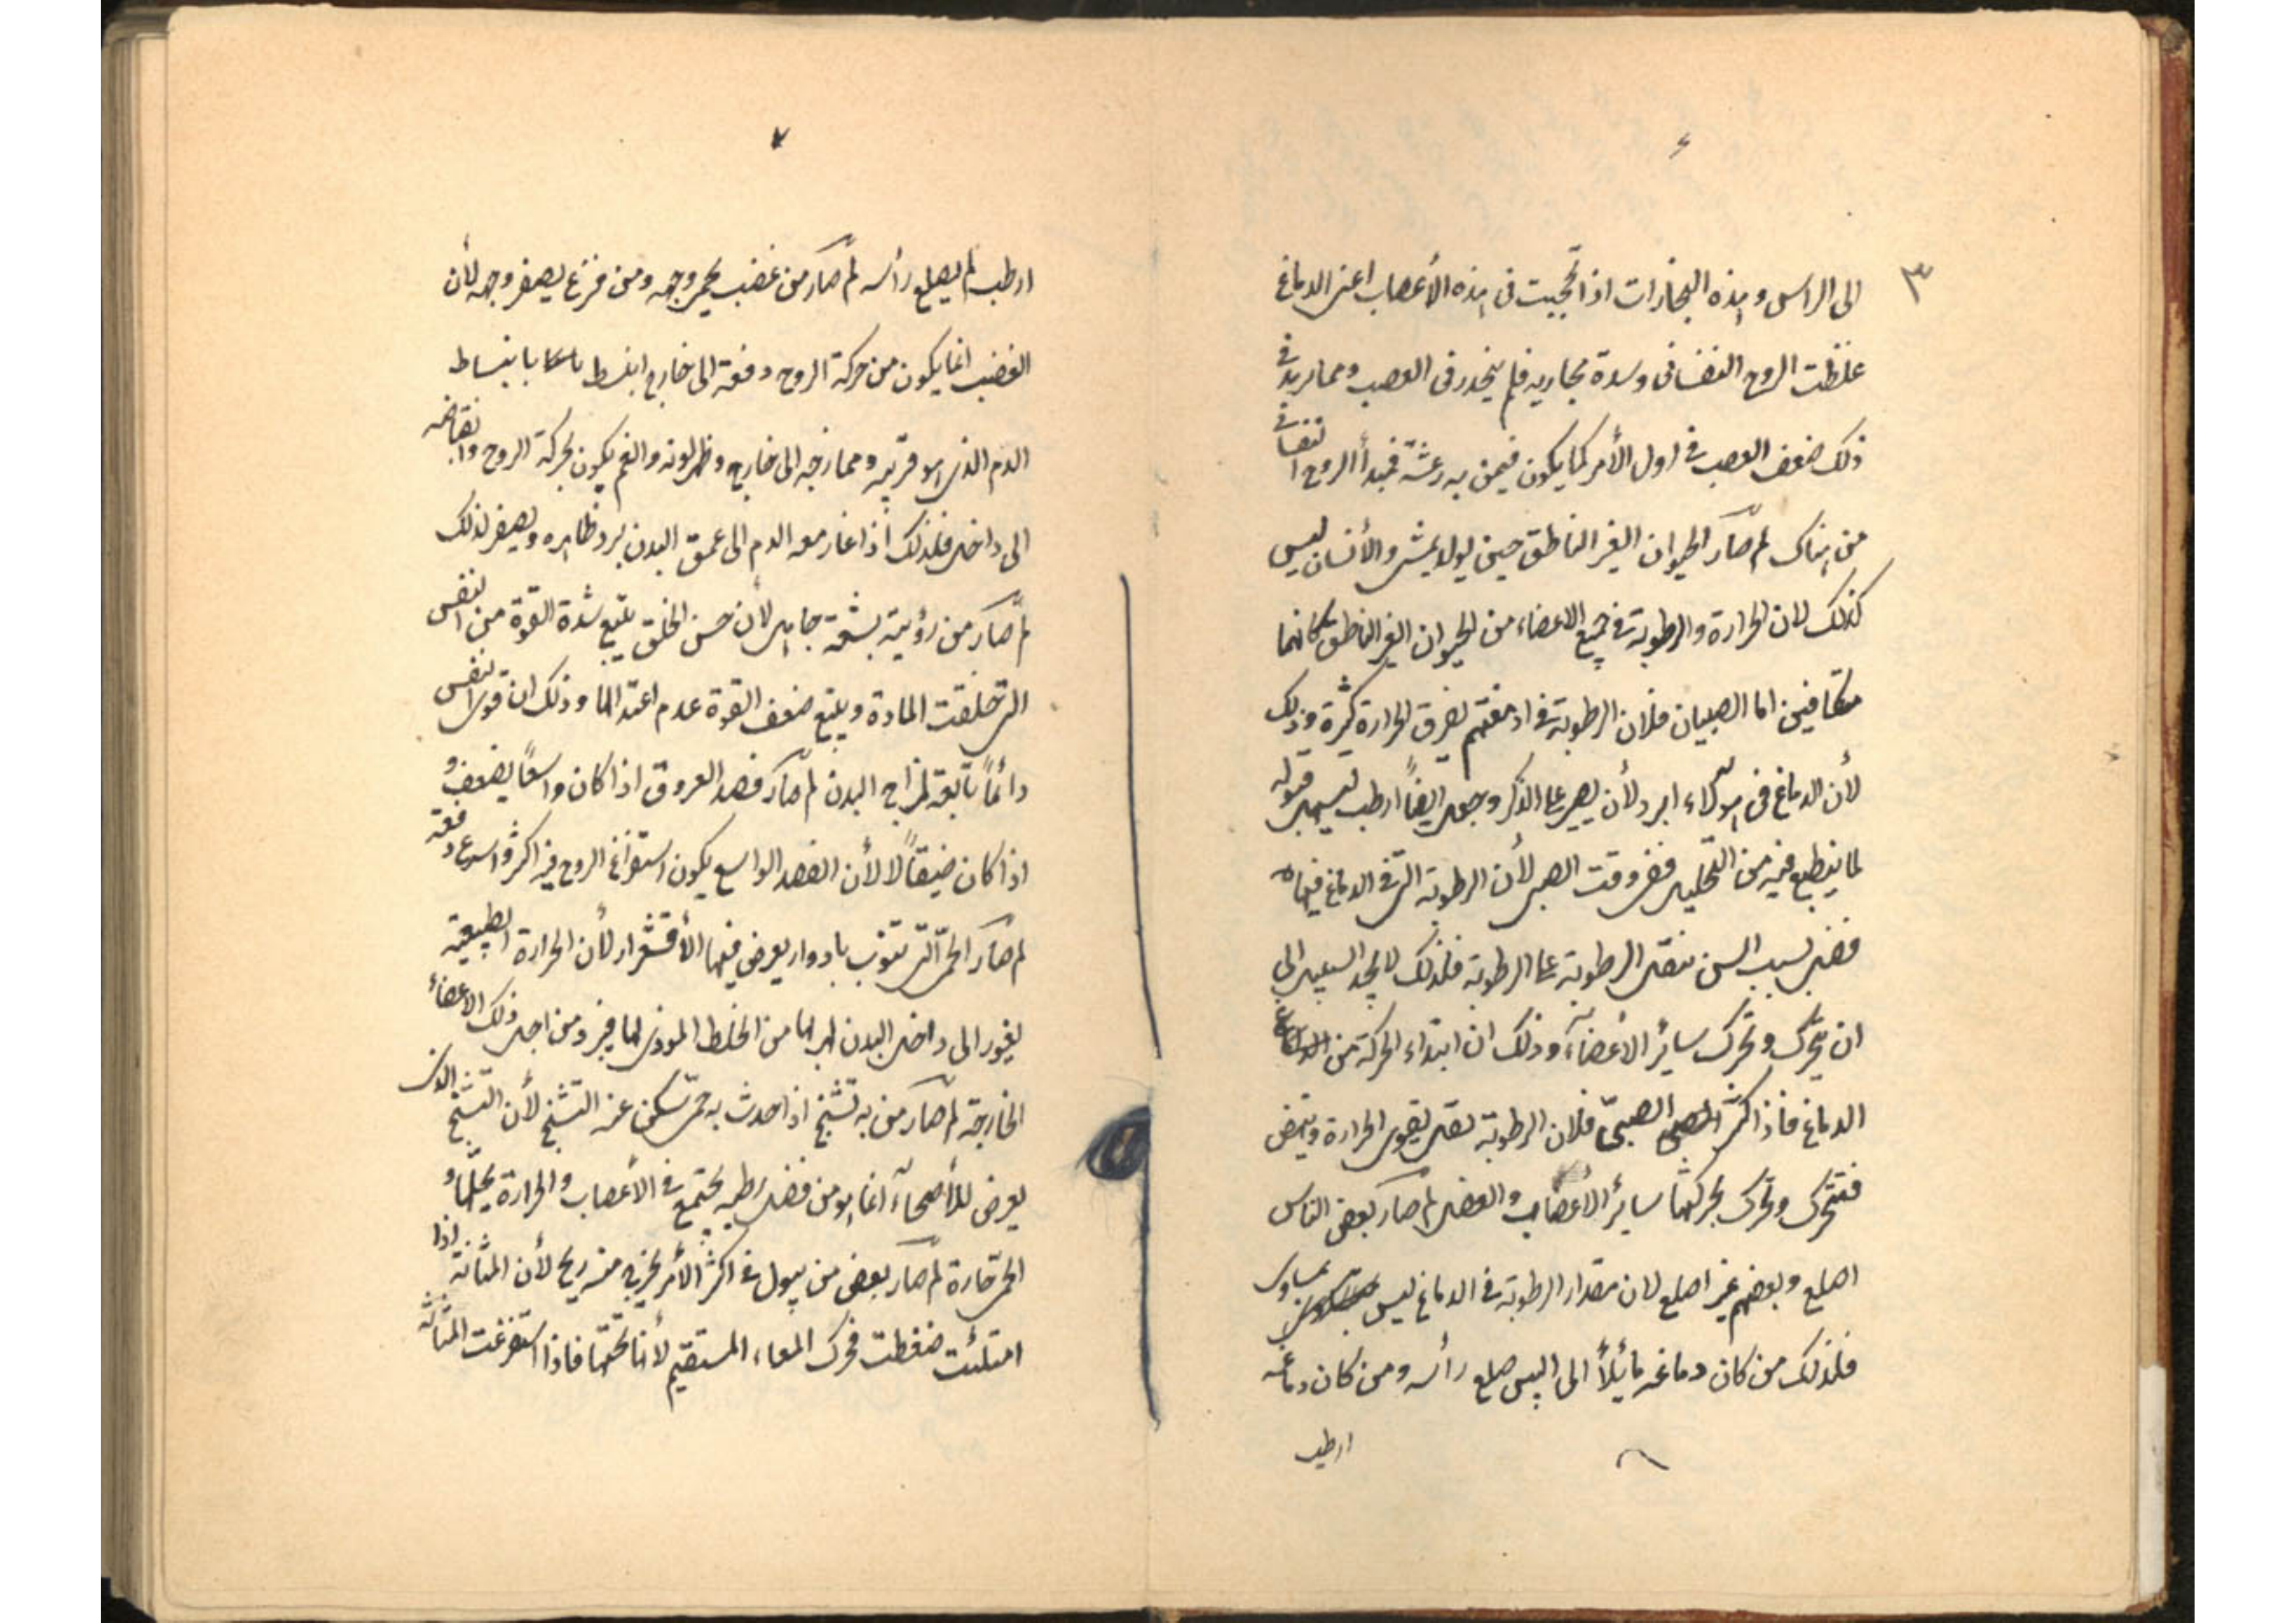 ٣
الى الراس وهذه البخارات اذا تحجبت فى هذه الأعصاب اعنى الدماغ
غلظت الروح النفسانى وسدة مجاريه فلم ينحدر فى العصب ومما يزيد فى
ذلك ضعف العصب فى اول الأمر كما يكون فيمن به رعشة فمبدأ الروح
من هناك لم صار الحيوان الغير الناطق حين يولد يمشى والأنسان ليس
كذلك لان الحرارة والرطوبة فى جميع الاعضاء من الحيوان الغير الناطق كانها
متكافين اما الصبيان فلان الرطوبة فى ادمغتهم تفرق الحرارة كثرة وذلك
لأن الدماغ فى هولاء ابرد لأن يصبر على الذكر وجعل ايضاً ارطب ليسهل قبوله
لما ينطبع فيه من التخيل ففى وقت الصبى لأن الرطوبة التى فى الدماغ فيها
فضل بسبب السن تثقل الرطوبة على الرطوبة فلذلك لا يجد السبيل الى
ان يتحرك وتحرك سائر الأعضآء وذلك ان ابتداء الحركة من
الدماغ فاذا كبر الصبىّ فلان الرطوبة تقل تقوى الحرارة وتنهض
فتتحرك وتحرك بحركتها سائر الأعصاب والعضل لم صار بعض الناس
اصلع وبعضهم غير اصلع لان مقدار الرطوبة فى الدماغ ليس بمتساوى
فلذلك من كان دماغه مائلاً الى اليبس صلع رأسه ومن كان دماغه
ارطب
ارطب لم يصلع رأسه لم صار من غضب يحمر وجهه ومن فزع يصفر وجهه لأن
الغضب انما يكون من حركة الروح دفعة الى خارج ابنسط بانبساط
الدم الذى هو قريبه وممازجه الى خارج وظهر لونه والغم يكون بحركة الروح وانقباضه
الى داخل فلذلك اذا غار معه الدم الى عمق البدن برد ظاهره ويصفر لذلك
لم صار من رؤيته بشعة جاهل لأن حسن الخلق يتبع شدة القوة من النفس
التى خلقت المادة ويتبع ضعف القوة عدم اعتدالها وذلك ان قوى النفس
دائماً تابعة لمزاج البدن لم صار فصد العروق اذا كان واسعاً يضعف و
اذا كان ضيقاً لا لأن الفصد الواسع يكون استفراغ الروح فيه اكثر واسرع دفعة
لم صار الحمّى التى تنوب بادوار يعرض فيها الأقشعرار لأن الحرارة الطبيعية
تغور الى داخل البدن لهربها من الخلط الموذى لها فيبرد من اجل ذلك الاعضاء
الخارجة لم صار من به تشنج اذا حدث به حمّى سكن عنه التشنج لأن التشنج الذى
يعرض للأصحآء انما هو من فضل رطبه يجتمع فى الأعصاب والحرارة يحللها و
الحمّى حارة لم صار بعض من يبول فى اكثر الأمر يخرج منه ريح لأن المثانة اذا
امتلئت ضغطت فحرك المعاء المستقيم لأنها تحتها فاذا استفرغت المثانة